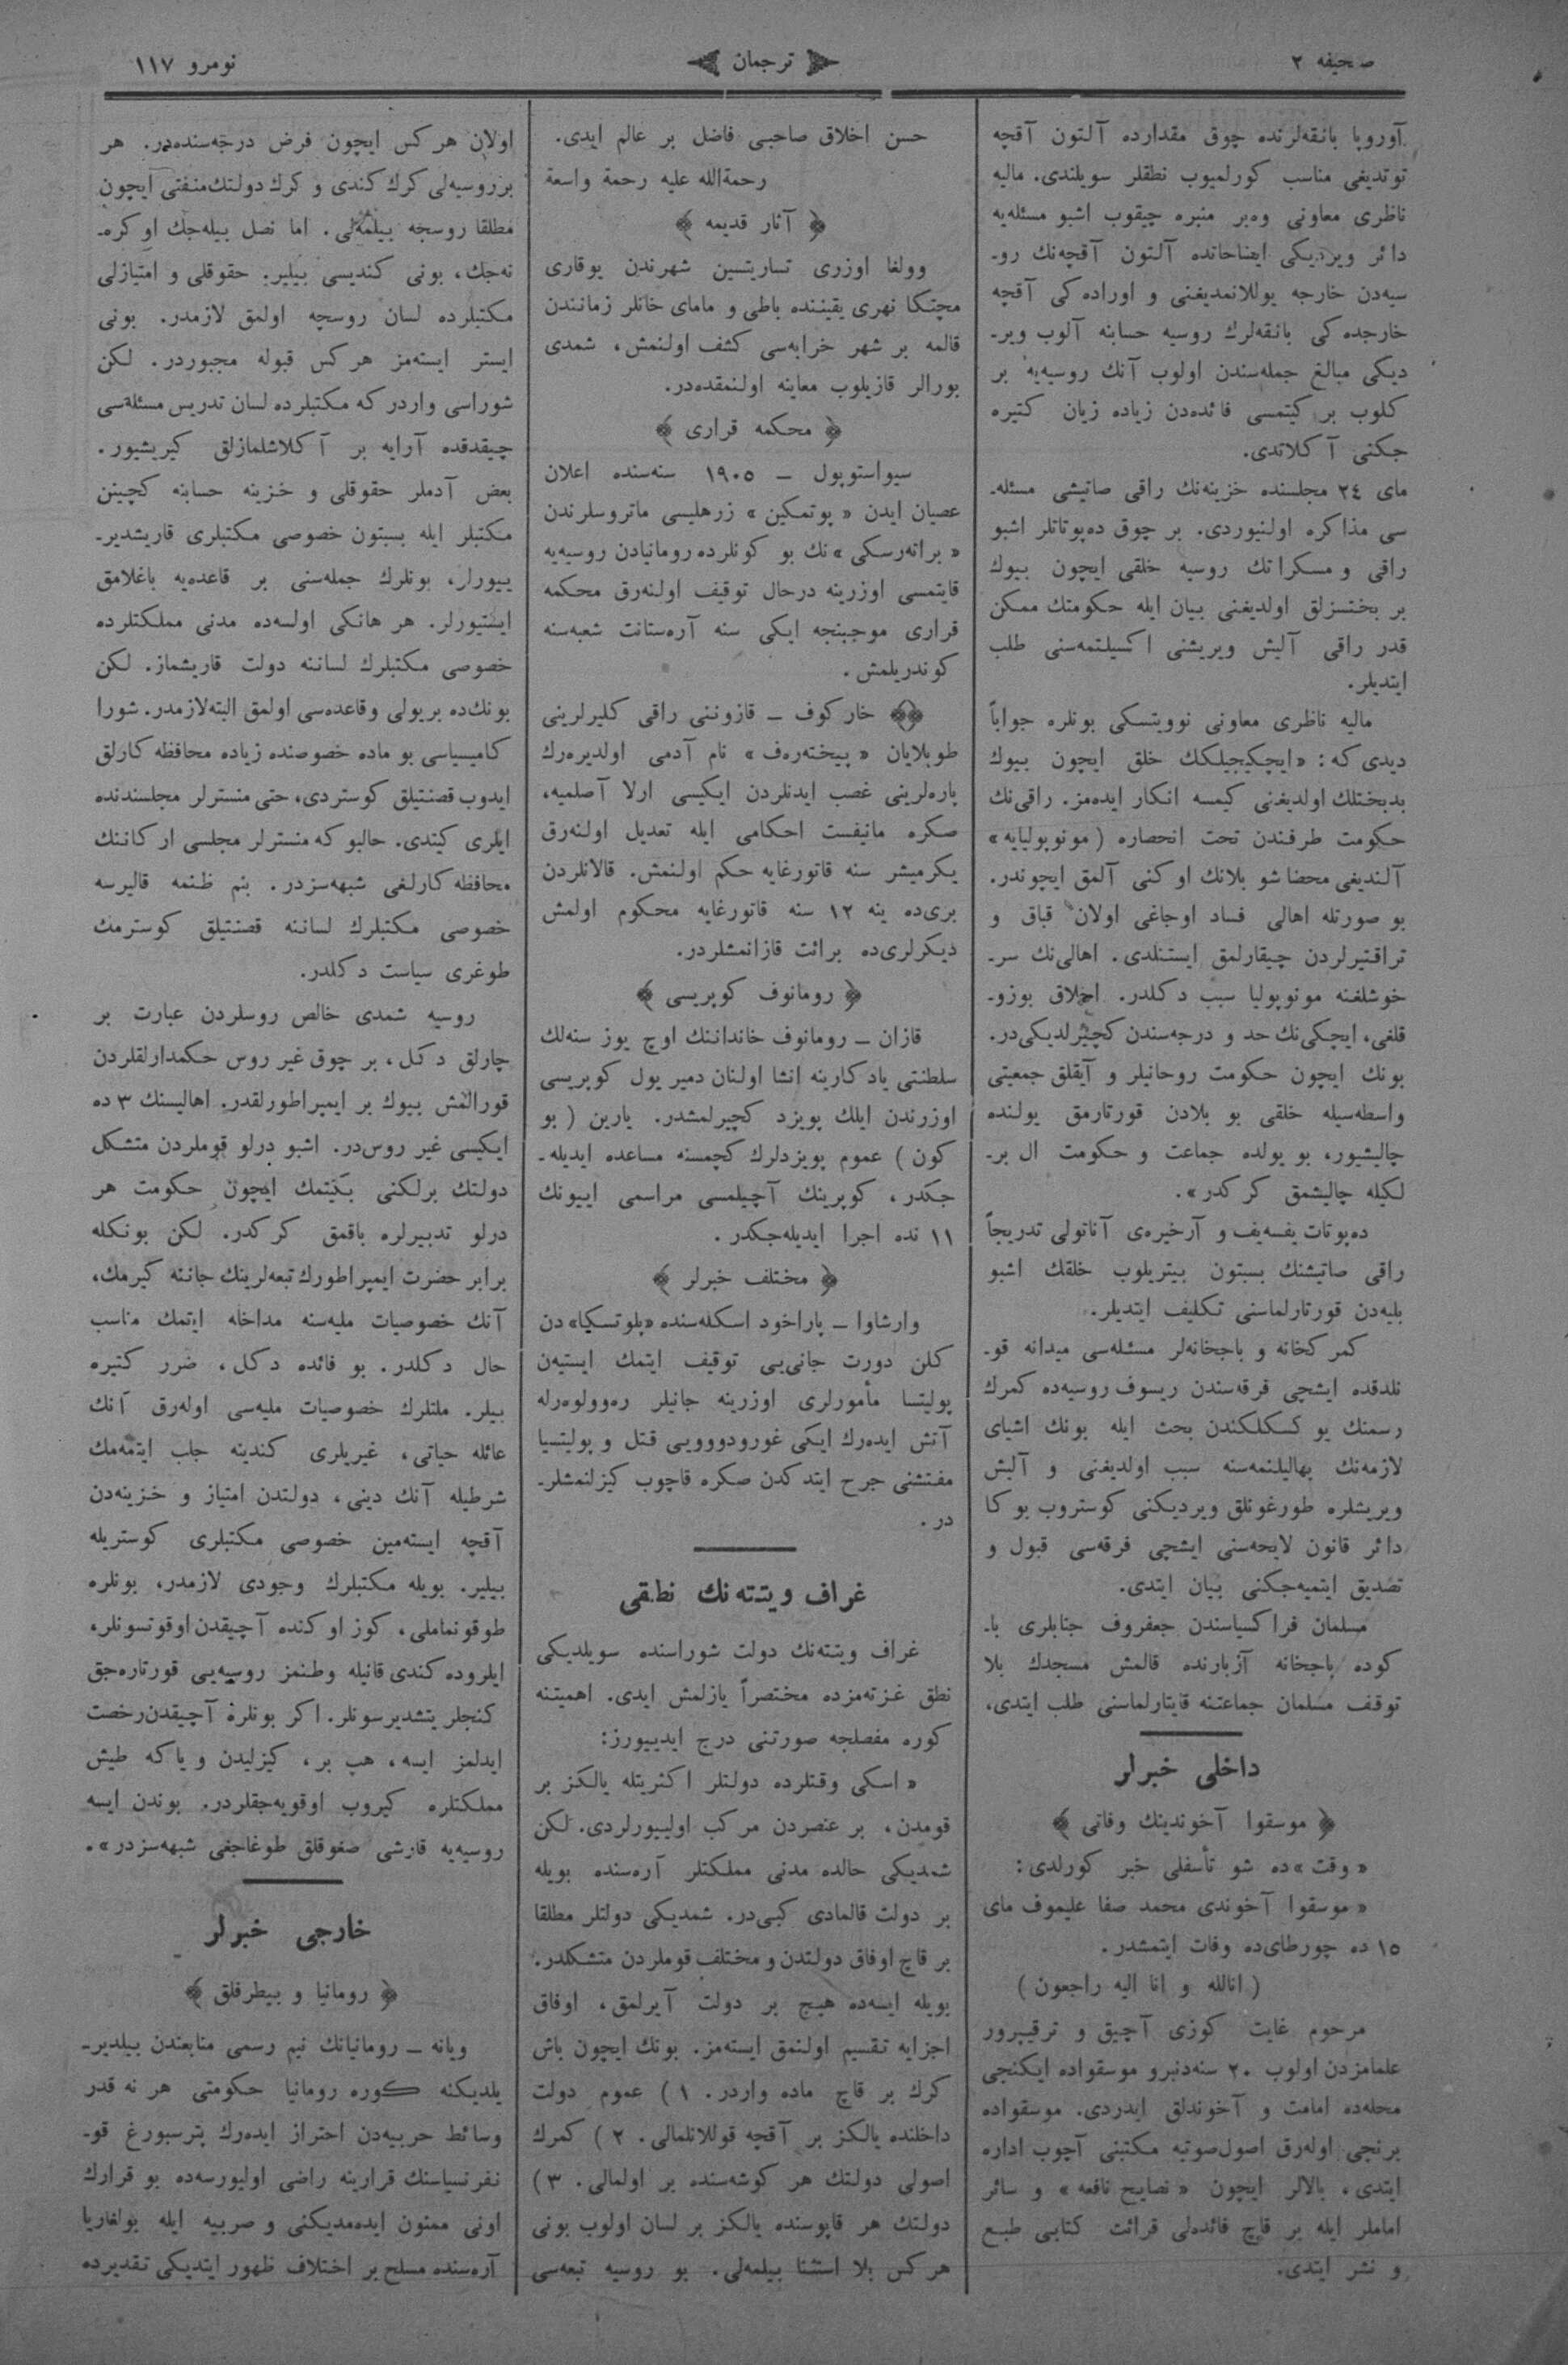 صحیفه ٢
ترجمان
نومرو ١١٧
آوروپا بانقه‌لرنده چوق مقدارده آلتون آقچه
توتدیغی مناسب کورلمیوب نطقلر سویلندی. مالیه
ناظری معاونی وه‌بر منبره چیقوب اشبو مسئله‌یه
دائر ویردیکی ایضاحاتده آلتون آقچه‌نك رو-
سیه‌دن خارجه یوللانمدیغنی و اوراده‌کی آقچه
خارجده‌کی بانقه‌لرك روسیه حسابنه آلوب ویر-
دیکی مبالغ جمله‌سندن اولوب آنك روسیه‌یه بر
کلوب بر کیتمسی فائده‌دن زیاده زیان کتیره
جکنی آکلاتدی.
مای ٢٤ مجلسنده خزینه‌نك راقی صاتیشی مسئله-
سی مذاکره اولنیوردی. بر چوق ده‌پوتاتلر اشبو
راقی و مسکراتك روسیه خلقی ایچون بیوك
بر بختسزلق اولدیغنی بیان ایله حکومتك ممکن
قدر راقی آلیش ویریشنی اکسیلتمه‌سنی طلب
ایتدیلر.
مالیه ناظری معاونی نوویتسکی بونلره جواباً
دیدی که: «ایچکیجیلکك خلق ایچون بیوك
بدبختلك اولدیغنی کیمسه انکار ایده‌مز. راقی‌نك
حکومت طرفندن تحت انحصاره (مونوپولیایه»
آلندیغی محضا شو بلانك اوکنی آلمق ایچوندر.
بو صورتله اهالی فساد اوجاغی اولان قباق و
تراقتیرلردن چیقارلمق ایستنلدی. اهالی‌نك سر-
خوشلغنه مونوپولیا سبب دکلدر. اخلاق بوزو-
قلغی، ایچکی‌نك حد و درجه‌سندن کچیرلدیکی‌در.
بونك ایچون حکومت روحانیلر و آیقلق جمعیتی
واسطه‌سیله خلقی بو بلادن قورتارمق یولنده
چالیشیور، بو یولده جماعت و حکومت ال بر-
لکیله چالیشمق کرکدر».
ده‌پوتات یفسه‌یف و آرخیره‌ی آناتولی تدریجاً
راقی صاتیشنك بسبتون بیتریلوب خلقك اشبو
بلیه‌دن قورتارلماسنی تکلیف ایتدیلر.
کمرکخانه و باجخانه‌لر مسئله‌سی میدانه قو-
نلدقده ایشچی فرقه‌سندن ریسوف روسیه‌ده کمرك
رسمنك یوکسکلکندن بحث ایله بونك اشیای
لازمه‌نك بهالیلنمه‌سنه سبب اولدیغنی و آلیش
ویریشلره طورغونلق ویردیکنی کوستروب بوکا
دائر قانون لایحه‌سنی ایشچی فرقه‌سی قبول و
تصدیق ایتمیه‌جکنی بیان ایتدی.
مسلمان فراکسیاسندن جعفروف جنابلری با-
کوده باجخانه آزبارنده قالمش مسجدك بلا
توقف مسلمان جماعتنه قایتارلماسنی طلب ایتدی،
داخلی خبرلر
﴿ موسقوا آخوندینك وفاتی ﴾
«وقت»ده شو تأسفلی خبر کورلدی:
«موسقوا آخوندی محمد صفا علیموف مای
١٥ ده چورطای‌ده وفات ایتمشدر.
(انالله و انا الیه راجعون)
مرحوم غایت کوزی آچیق و ترقیپرور
علمامزدن اولوب ٢٠ سنه‌دنبرو موسقواده ایکنجی
محله‌ده امامت و آخوندلق ایدردی. موسقواده
برنجی اوله‌رق اصول‌صوتیه مکتبنی آچوب اداره
ایتدی، بالالر ایچون «نصایح نافعه» و سائر
اماملر ایله بر قاچ فائده‌لی قرائت کتابی طبع
و نشر ایتدی.
حسن اخلاق صاحبی فاضل بر عالم ایدی.
رحمةالله علیه رحمة واسعة
﴿ آثار قدیمه ﴾
وولغا اوزری تساریتسین شهرندن یوقاری
مچتکا نهری یقیننده باطی و مامای خانلر زمانندن
قالمه بر شهر خرابه‌سی کشف اولنمش، شمدی
بورالر قازیلوب معاینه اولنمقده‌در.
﴿ محکمه قراری ﴾
سیواستوپول — ١٩٠٥ سنه‌سنده اعلان
عصیان ایدن «پوتمکین» زرهلیسی ماتروسلرندن
«براته‌رسکی»نك بو کونلرده رومانیادن روسیه‌یه
قایتمسی اوزرینه درحال توقیف اولنه‌رق محکمه
قراری موجبنجه ایکی سنه آره‌ستانت شعبه‌سنه
کوندریلمش.
خارکوف — قازوننی راقی کلیرلرینی
طوپلایان «پیخته‌ره‌ف» نام آدمی اولدیره‌رك
پاره‌لرینی غصب ایدنلردن ایکیسی ارلا آصلمیه،
صکره مانیفست احکامی ایله تعدیل اولنه‌رق
یکرمیشر سنه قاتورغایه حکم اولنمش. قالانلردن
بری‌ده ینه ١٢ سنه قاتورغایه محکوم اولمش
دیکرلری‌ده برائت قازانمشلردر.
﴿ رومانوف کوپریسی ﴾
قازان — رومانوف خانداننك اوچ یوز سنه‌لك
سلطنتی یادکارینه انشا اولنان دمیر یول کوپریسی
اوزرندن ایلك پویزد کچیرلمشدر. یارین (بو
کون) عموم پویزدلرك کچمسنه مساعده ایدیله-
جکدر، کوپرینك آچیلمسی مراسمی اییونك
١١ نده اجرا ایدیله‌جکدر.
﴿ مختلف خبرلر ﴾
وارشاوا — پاراخود اسکله‌سنده «پلوتسکیا»دن
کلن دورت جانی‌یی توقیف ایتمك ایستیه‌ن
پولیتسا مأمورلری اوزرینه جانیلر ره‌وولوه‌رله
آتش ایده‌رك ایکی غورودوویی قتل و پولیتسیا
مفتشنی جرح ایتدکدن صکره قاچوب کیزلنمشلر-
در.
غراف ویتته‌نك نطقی
غراف ویتته‌نك دولت شوراسنده سویلدیکی
نطق غزته‌مزده مختصراً یازلمش ایدی. اهمیتنه
کوره مفصلجه صورتنی درج ایدییورز:
«اسکی وقتلرده دولتلر اکثریتله یالکز بر
قومدن، بر عنصردن مرکب اولییورلردی. لکن
شمدیکی حالده مدنی مملکتلر آره‌سنده بویله
بر دولت قالمادی کبی‌در. شمدیکی دولتلر مطلقا
بر قاچ اوفاق دولتدن و مختلف قوملردن متشکلدر.
بویله ایسه‌ده هیچ بر دولت آیرلمق، اوفاق
اجزایه تقسیم اولنمق ایسته‌مز. بونك ایچون باش
کرك بر قاچ ماده واردر. ١) عموم دولت
داخلنده یالکز بر آقچه قوللانلمالی. ٢) کمرك
اصولی دولتك هر کوشه‌سنده بر اولمالی. ٣)
دولتك هر قاپوسنده یالکز بر لسان اولوب بونی
هرکس بلا استثنا بیلمه‌لی. بو روسیه تبعه‌سی
اولان هرکس ایچون فرض درجه‌سنده‌در. هر
برروسیه‌لی کرك کندی و کرك دولتك‌منفتی ایچون
مطلقا روسجه بیلمه‌لی. اما نصل بیله‌جك اوکره-
نه‌جك، بونی کندیسی بیلیر. حقوقلی و امتیازلی
مکتبلرده لسان روسچه اولمق لازمدر. بونی
ایستر ایسته‌مز هرکس قبوله مجبوردر. لکن
شوراسی واردر که مکتبلرده لسان تدریس مسئله‌سی
چیقدقده آرایه بر آکلاشلمازلق کیریشیور.
بعض آدملر حقوقلی و خزینه حسابنه کچینن
مکتبلر ایله بسبتون خصوصی مکتبلری قاریشدیر-
ییورلر، بونلرك جمله‌سنی بر قاعده‌یه باغلامق
ایستیورلر. هر هانکی اولسه‌ده مدنی مملکتلرده
خصوصی مکتبلرك لساننه دولت قاریشماز. لکن
بونك‌ده بریولی وقاعده‌سی اولمق البته‌لازمدر. شورا
کامیسیاسی بو ماده خصوصنده زیاده محافظه کارلق
ایدوب قصنتیلق کوستردی، حتی منسترلر مجلسندنده
ایلری کیتدی. حالبو که منسترلر مجلسی ارکاننك
محافظه کارلغی شبهه‌سزدر. بنم ظنمه قالیرسه
خصوصی مکتبلرك لساننه قصنتیلق کوسترمك
طوغری سیاست دکلدر.
روسیه شمدی خالص روسلردن عبارت بر
چارلق دکل، بر چوق غیر روس حکمدارلقلردن
قورالمش بیوك بر ایمپراطورلقدر. اهالیسنك ٣ ده
ایکیسی غیر روس‌در. اشبو درلو قوملردن متشکل
دولتك برلکنی بکیتمك ایچون حکومت هر
درلو تدبیرلره باقمق کرکدر. لکن بونکله
برابر حضرت ایمپراطورك تبعه‌لرینك جاننه کیرمك،
آنك خصوصیات ملیه‌سنه مداخله ایتمك مناسب
حال دکلدر. بو فائده دکل، ضرر کتیره
بیلر. ملتلرك خصوصیات ملیه‌سی اوله‌رق آنك
عائله حیاتی، غیریلری کندینه جلب ایتمه‌مك
شرطیله آنك دینی، دولتدن امتیاز و خزینه‌دن
آقچه ایسته‌مین خصوصی مکتبلری کوستریله
بیلیر. بویله مکتبلرك وجودی لازمدر، بونلره
طوقونماملی، کوز اوکنده آچیقدن اوقوتسونلر،
ایلروده کندی قانیله وطنمز روسیه‌یی قورتاره‌جق
کنجلر یتشدیرسونلر. اکر بونلره آچیقدن‌رخصت
ایدلمز ایسه، هپ بر، کیزلیدن ویاکه طیش
مملکتلره کیروب اوقویه‌جقلردر. بوندن ایسه
روسیه‌یه قارشی صغوقلق طوغاجغی شبهه‌سزدر».
خارجی خبرلر
﴿ رومانیا و بیطرفلق ﴾
ویانه — رومانیانك نیم رسمی منابعندن بیلدیر-
یلدیکنه کوره رومانیا حکومتی هر نه قدر
وسائط حربیه‌دن احتراز ایده‌رك پترسبورغ قو-
نفرنسیاسنك قرارینه راضی اولیورسه‌ده بو قرارك
اونی ممنون ایده‌مدیکنی و صربیه ایله بولغاریا
آره‌سنده مسلح بر اختلاف ظهور ایتدیکی تقدیرده